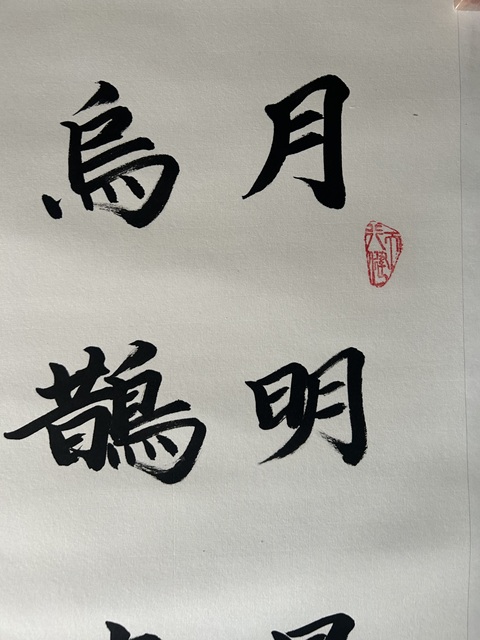 月明
烏鵲